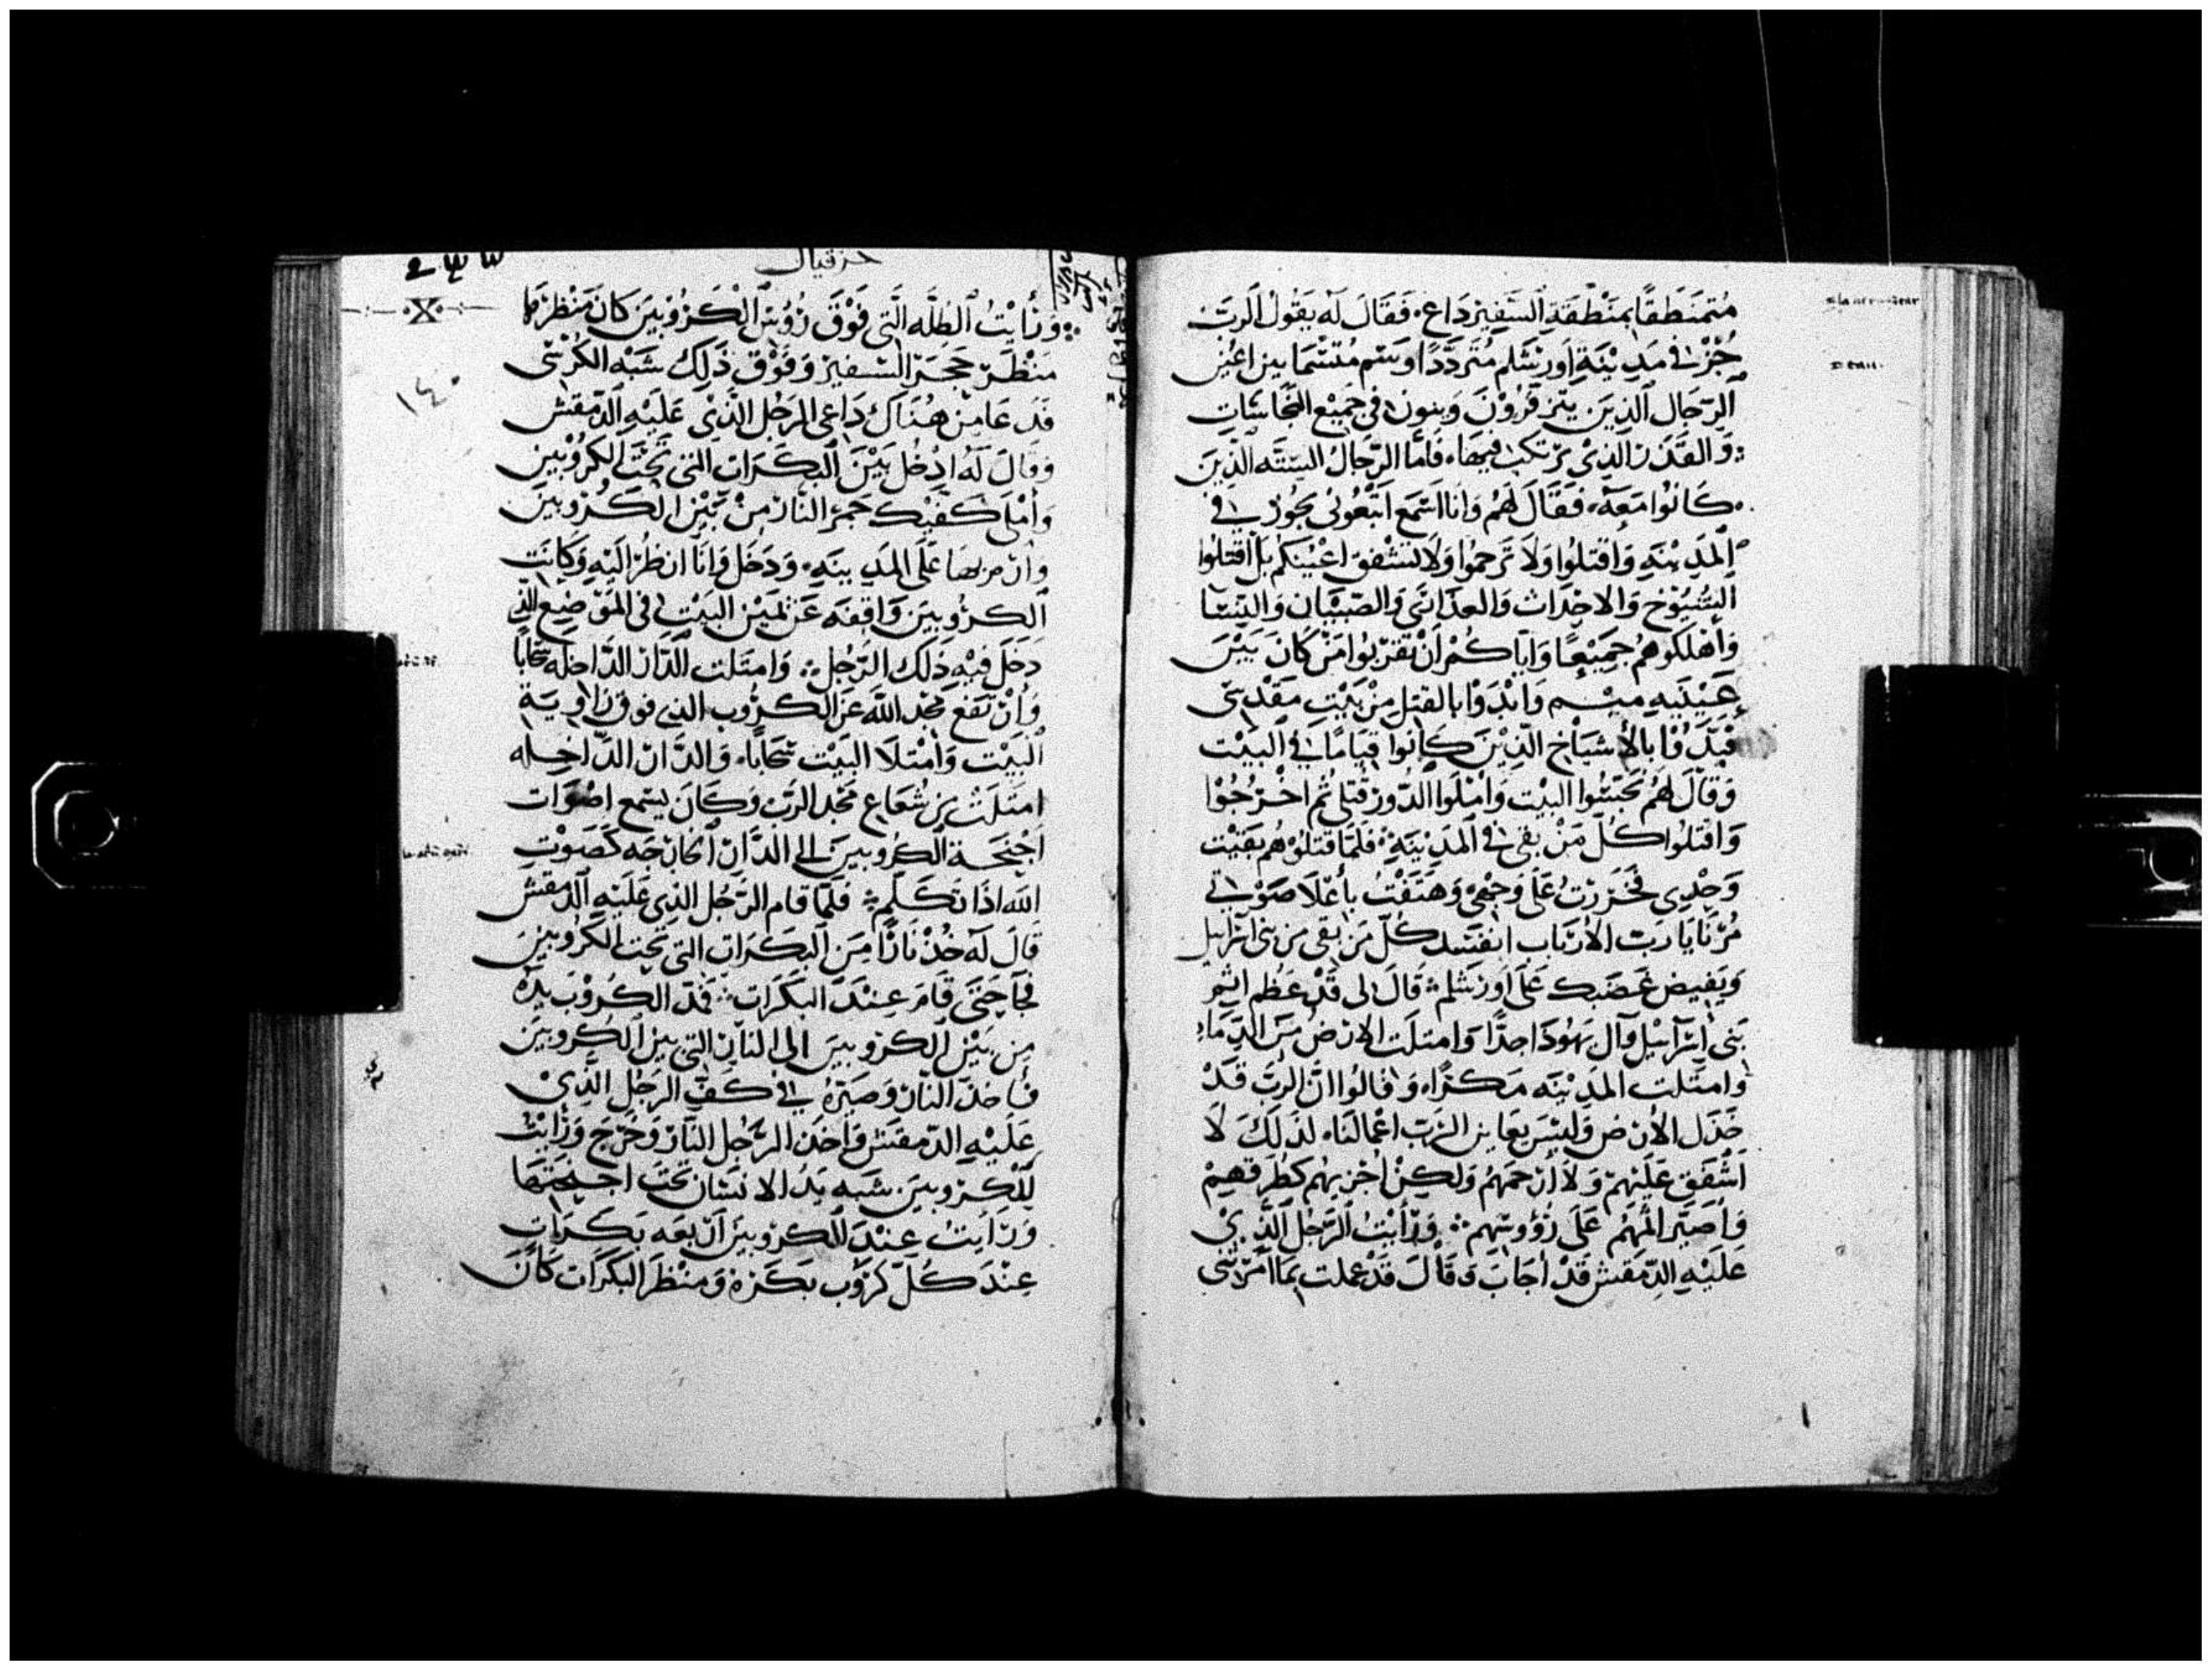 مُتَمَنْطِقًا بِمَنْطَقَةِ السَّفِيرِ دَاعٍ. فَقَالَ لَه يَقُولُ الرَّبّ
جُزْ فى مَدِينَةِ اُورَشَلم مُتَرَدّدًا وَسَم مُتسّمًا بين اعيُن
الرّجَال الّذِينَ يتزفرُوْنَ وَينونَ فى جَمِيْع النّجَاسَاتِ
وَالقَذَر الذِى يرْتكب فِيهَا. فَأمّا الرّجَالُ السِتّه الّذِينَ
كَانُوا مَعَهُ. فَقَالَ لَهُم وَانَا اسَمع اتبعُونى بحُوز فى
المَدِينَةِ وَاقتلوا وَلا تَرحموا وَلا تشْفق اعْيُنَكُم بَل اقتلوا
الشُيُوْخ وَالاحْدَاث وَالعدَاتى وَالصّبْيَان وَالنّسَا
وَأهْلكوهُم جَمِيْعًا وَايّاكُمْ أنْ تَقْرَبُوا مَنْ كَانَ بَيْنَ
عَيْنَيهِ ميسم وَابْدَوْا بالقتل مِنْ بَيْتِ مَقْدسى
فبَدَوْا بالأشيَاخ الّذِيْنَ كَانوا قِيَامًا فى البَيْت
وَقَالَ لهُم نجّسُوا البَيْت وَامْلَوا الدّور قتلى ثم اخْرُجُوْا
وَاقتلوا كُلّ مَنْ بقى فى المَدِيْنَةِ. فلمّا قتلوْهُم بَقيْت
وَحْدِى فخَرَرْتُ عَلى وَجْهى وَهَتَفْتُ بأعْلا صَوْتى
مُرّنَايَا رَبّ الأرْبَاب اتفسد كُلّ مَن بقى من بنى اسْرَاييل
وَيَفيض غَضَبك عَلَى اُورَشلم قَالَ لى قَدْ عَظُم اثم
بَنى اسْرَآئيْل وَآل يَهُودَا جِدًّا وَامتَلَت الارْضُ مِنَ الدِمَا
وَامتَلت المَدِيْنَه مَكرًا. وَقالُوا انّ الرَبّ قَدْ
خَذَل الارْض وَليسَ يعَاين الرَبّ اعمَالنَا. لذَلكَ لا
اَشْفَق عَلَيْهِمْ وَلا أرْحَمهُمْ وَلكِنْ اُجْزيهُم كَطُرقهِمْ
وَاُصَيّر المهُمْ عَلَى رُؤُوسهم. وَرَأيْتُ الرّجُل الّذِىْ
عَلَيْهِ الدِّمَقس قَدْ اجَابَ وَقَالَ قَدْ عملت بما امَرْتَنى
حزقيال
وَرَأيْتُ الظُلّه الّتى فَوْقَ رُؤُسِ الْكَرُوْبِينَ كَانَ مَنْظرهَا
مَنْظَر حَجَر السّفير وَفَوْق ذَلِكَ شَبَه الكُرْسى
فَدَعَا مِنْ هُنَاكَ دَاعى الرَجُل الّذِى عَلَيْهِ الدّمَقس
وَقَالَ لَهُ ادْخُل بَيْنَ البَكَرَات التى تَحْت الكَرُوْبين
وَأمْلى كَفّيْك جَمْر النّار مِنْ بَيْنِ الكَرُوبِين
وَانْ مربهَا عَلَى المَدِينَةِ. وَدَخَل وَانَا انظُر الَيْهِ وَكَانَت
الكَرُوبينَ وَاقِفَه عَنْ يَمِيْن البَيْت فى المَوْضِع الّذِى
دَخَل فِيْهِ ذَلك الرَجُل. وَامتَلت الدّار الدّاخِله سَحَابًا
وَانْ تَفَع مَجْد الله عَن الكَرُوب الذى فوق زَاويَة
البَيْت وَامْتلَا البَيْت سَحَابًا. وَالدّار الدّاخِله
امتَلَتْ مِن شُعَاع مَجْد الرَبّ وَكَانَ يسمع اصْوَات
اجْنِحَة الكرُوبينَ الى الدَّار الخارجَه كَصَوْتِ
الله اذَا تكلّم فلمّا قام الرّجُل الذِى عَلَيْهِ الدّمقس
قالَ لَه خُذْ نَارًا مِنَ البَكَرَات التى تحت الكَرُوبينَ
فجَا حَتّى قَامَ عِنْدَ البَكَرَات. فمَدّ الكَرُوْب يدَهُ
مِن بَيْن الكَرُوبينَ الى النّار التى بين الكَرُوبينَ
فأخذَ النّار وَصَيّرهُ فى كَفّ الرَجُل الّذِىْ
عَلَيْهِ الدّمقس وَأخَذ الرّجُل النّار وَخَرَج وَرَأيْتُ
للكرُوبينَ شَبَه يَدُ الانسَان تَحْت اجْنِحَتهَا
وَرَأيتُ عِنْدَ الكرُوبينَ اربَعَه بَكَرَات
عِنْدَ كُلّ كَرُوْب بَكَرَة وَمَنْظَر البَكَرَات كَانَ
١٤٠